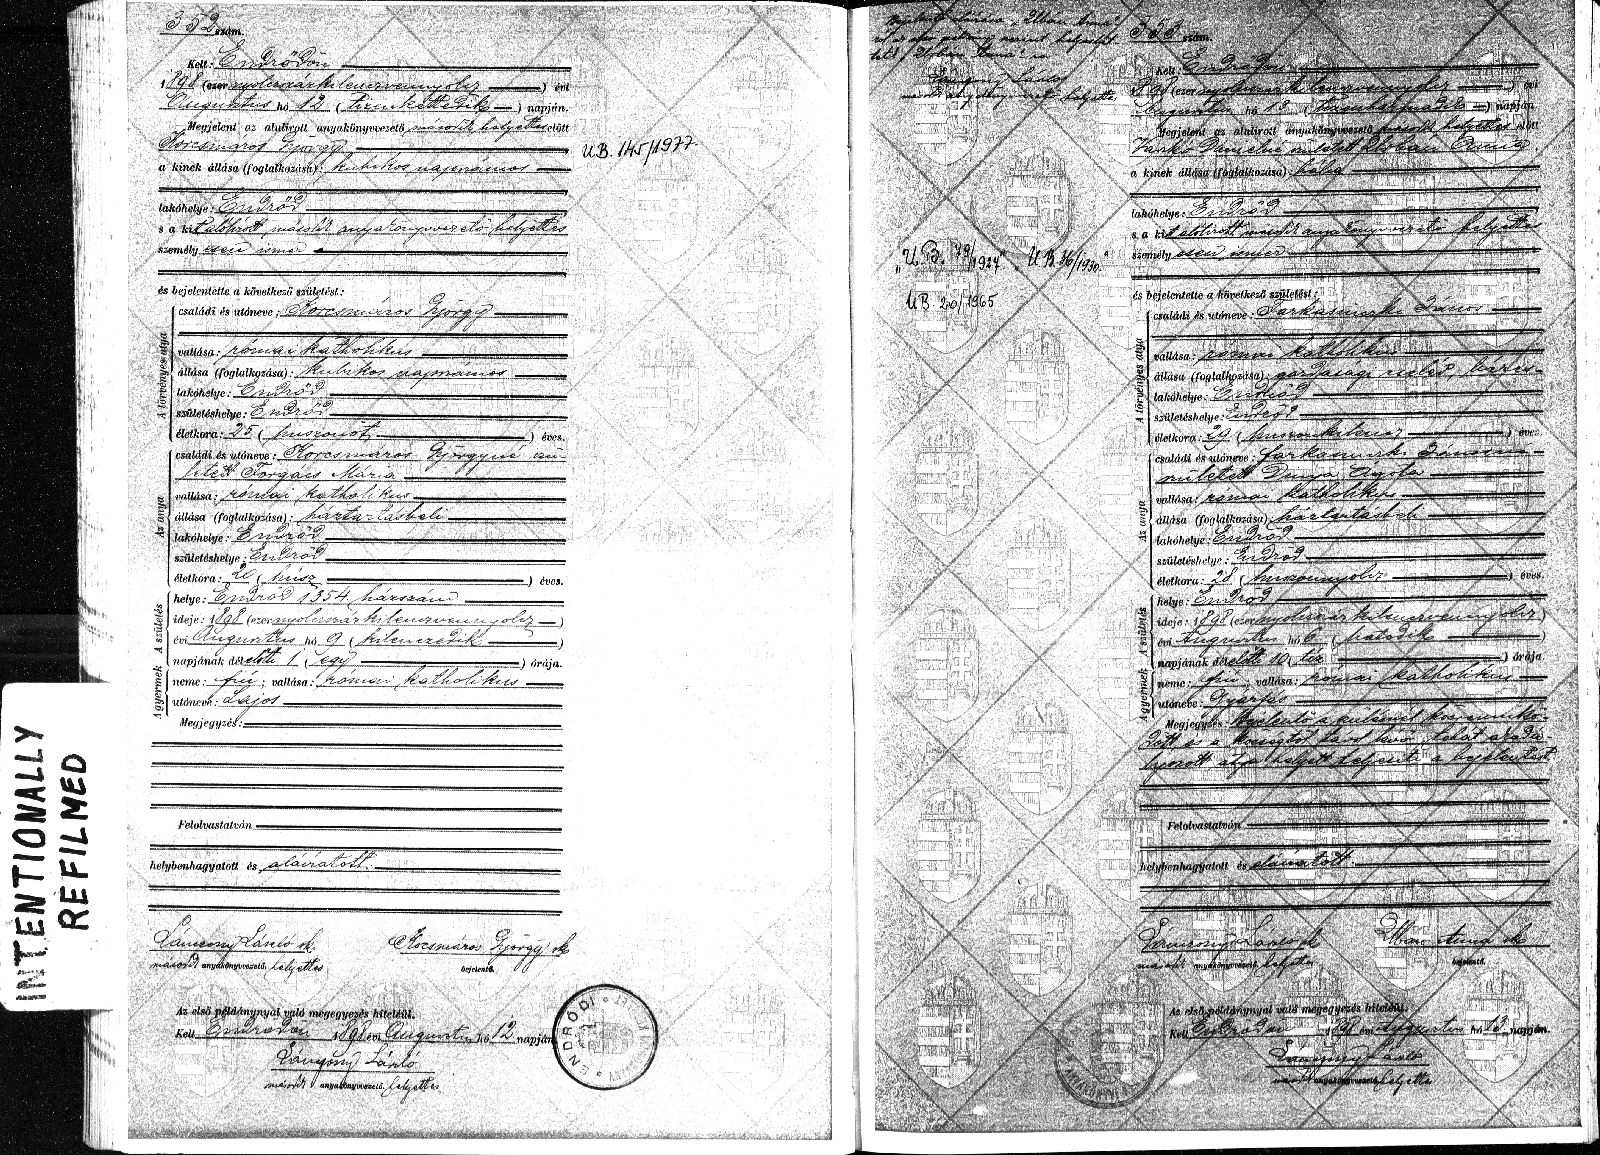 INTENTIONALLY
REFILMED
352 szám.
Kelt: Endrődön
1898 (ezernyolcszázkilencvennyolcz) évi
Augusztus hó 12 (tizenkettedik) napján.
Megjelent az alulirott anyakönyvvezető második helyettes előtt
Korcsmáros György
a kinek állása (foglalkozása): kubikos napszámos
lakóhelye: Endrőd
s a kit alólirott második anyakönyvvezető helyettes
személyesen ismer
és bejelentette a következő születést:
A törvényes atya
családi és utóneve: Korcsmáros György
vallása: római katholikus
állása (foglalkozása): kubikos napszámos
lakóhelye: Endrőd
születéshelye: Endrőd
életkora: 25 (huszonöt) éves.
Az anya
családi és utóneve: Korcsmáros Györgyné szü-
letett Forgács Mária
vallása: római katholikus
állása (foglalkozása): háztartásbeli
lakóhelye: Endrőd
születéshelye: Endrőd
életkora: 20 (húsz) éves.
A születés
helye: Endrőd 1354 házszám
ideje: 1898 (ezernyolcszázkilencvennyolcz)
évi Augusztus hó 9 (kilenczedik)
napjának délelőtti 1 (egy) órája.
A gyermek
neme: fiú; vallása: római katholikus
utóneve: Lajos
Megjegyzés:
Felolvastatván
helybenhagyatott és aláíratott.
László sk Korcsmáros György sk
másod anyakönyvvezető. helyettes bejelentő.
Az első példánynyal való megegyezés hiteléül.
Kelt Endrődön 1898 évi Augusztus hó 12 napján
László
másod anyakönyvvezető. helyettes
ENDRŐDI
UB. 145/1977.
353 szám.
Kelt: Endrődön
1898 (ezernyolcszázkilencvennyolcz) évi
Augusztus hó 13 (tizenharmadik) napján
Megjelent az alulirott anyakönyvvezető második helyettes előtt
született Anna
a kinek állása (foglalkozása): bába
lakóhelye: Endrőd
s a kit alólirott második anyakönyvvezető helyettes
személyesen ismer
"U.B. 79/1927" "U.B. 36/1930."
UB 20/1965
és bejelentette a következő születést:
A törvényes atya
családi és utóneve: Farkasinszki János
vallása: római katholikus
állása (foglalkozása): gazdasági cseléd, béres
lakóhelye: Endrőd
születéshelye: Endrőd
életkora: 29 (huszonkilencz) éves.
Az anya
családi és utóneve: Farkasinszki Jánosné
született Dunya Ágota
vallása: római katholikus
állása (foglalkozása): háztartásbeli
lakóhelye: Endrőd
születéshelye: Endrőd
életkora: 28 (huszonnyolcz) éves.
A születés
helye: Endrőd
ideje: 1898 (ezernyolcszázkilencvennyolcz)
évi Augusztus hó 6 (hatodik)
napjának délelőtti 10 (tíz) órája
A gyermek
neme: fiú; vallása: római katholikus
utóneve:
Megjegyzés: Bejelentő a szülésnél közremüködött
és a községtől távol levő, tehát akadá-
lyozott atya helyett teljesíti a bejelentést
Felolvastatván
helybenhagyatott és aláíratott
László sk Anna sk
másod anyakönyvvezető. helyettes bejelentő.
Az első példánynyal való megegyezés hiteléül.
Kelt Endrődön 1898 évi Augusztus hó 13 napján.
László
másod anyakönyvvezető. helyettes